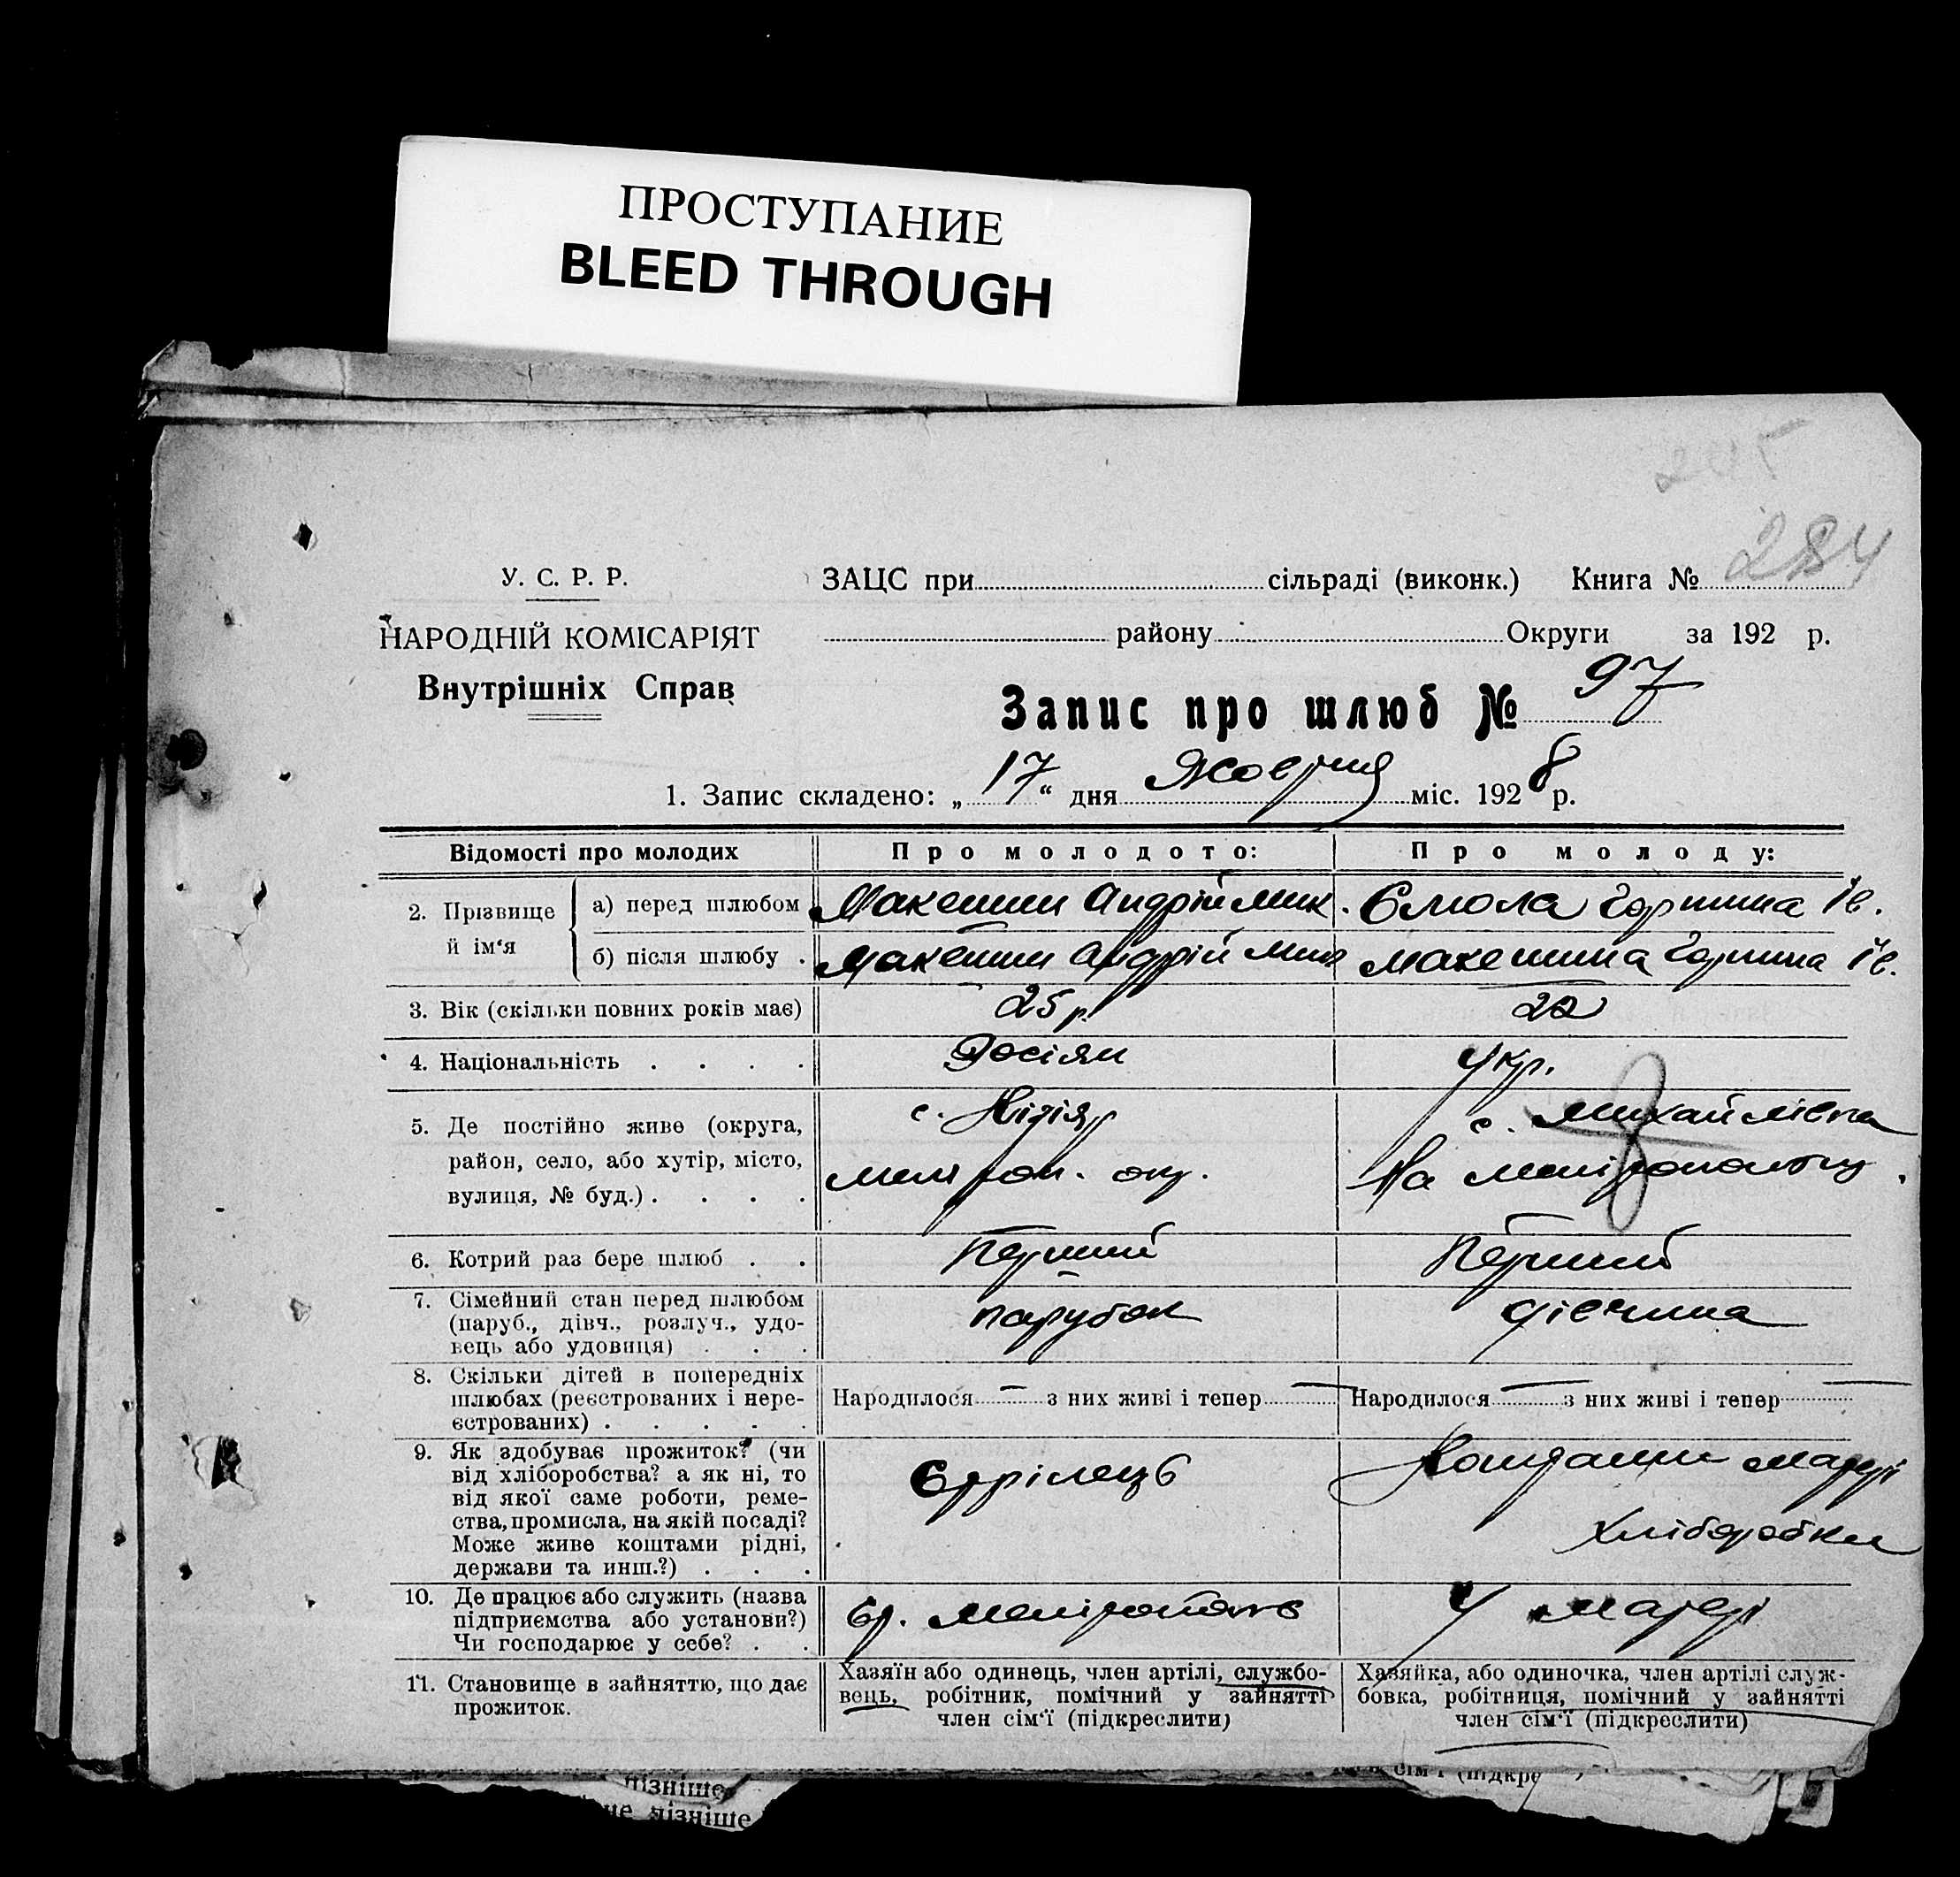 ПРОСТУПАНИЕ
BLEED THROUGH
284
У. С. Р. Р.
НАРОДНІЙ КОМІСАРІЯТ
Внутрішніх Справ
ЗАЦС при сільраді (виконк.) Книга №
району Округи за 192 р.
Запис про шлюб № 97
1. Запис складено: „17“ дня Жовтня міс. 1928 р.
Відомості про молодих
Про молодого:
Про молоду:
2. Прізвище й ім‘я
а) перед шлюбом
Макешин Андрій Мик.
Гарпина Ів.
б) після шлюбу .
Макешин Андрій Мик
Макешина Гарпина Ів.
3. Вік (скільки повних років має)
25 р.
22
4. Національність . . . .
Росіян
Укр.
5. Де постійно живе (округа,
район, село, або хутір, місто,
вулиця, № буд.) . . . .
с.
меліт окр.
с. Михайлівка
на Мелітопольщ.
6. Котрий раз бере шлюб . .
Перший
Перший
7. Сімейний стан перед шлюбом
(паруб., дівч., розлуч., удо-
вець або удовиця) . . .
парубок
дівчина
8. Скільки дітей в попередніх
шлюбах (реєстрованих і нере-
єстрованих) . . . . .
Народилося — з них живі і тепер —
Народилося — з них живі і тепер —
9. Як здобуває прожиток? (чи
від хліборобства? а як ні, то
від якої саме роботи, реме-
ства, промисла, на якій посаді?
Може живе коштами рідні,
держави та инш.?) . . .
Коштами матері
хліборобки
10. Де працює або служить (назва
підприємства або установи?)
Чи господарює у себе? . .
Мелітополь
У матері
11. Становище в зайняттю, що дає
прожиток.
Хазяїн або одинець, член артілі, службо-
вець, робітник, помічний у зайнятті
член сім‘ї (підкреслити)
Хазяйка, або одиночка, член артілі служ-
бовка, робітниця, помічний у зайнятті
член сім‘ї (підкреслити)
пізніше
пізніше